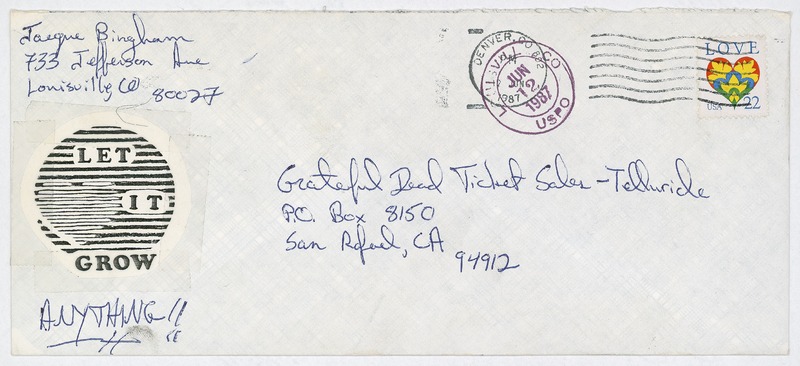 Jaeque Bingham
733 Jefferson Ave
Louisville, CO 80027
DENVER, CO 802
1987
LOUISVILLE CO
JUN
12
1987
USPO
LOVE
USA 22
LET
IT
GROW
Grateful Dead Ticket Sales - Telluride
P.O. Box 8150
San Rafael, CA
94912
ANYTHING!!